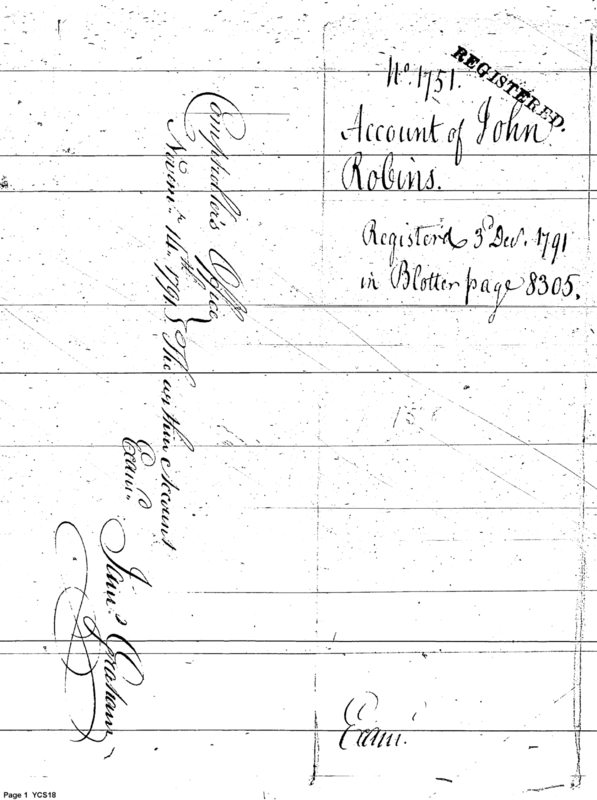 REGISTERED.
No. 1751.
Account of John
Robins.
Registerd 3d Decr. 1791
in Blotter page 8305.
Comptroller's Office
Novemr. 14th. 1791 } The within Account
Examd.
Jams. Graham
Exam.
Page 1 YCS18